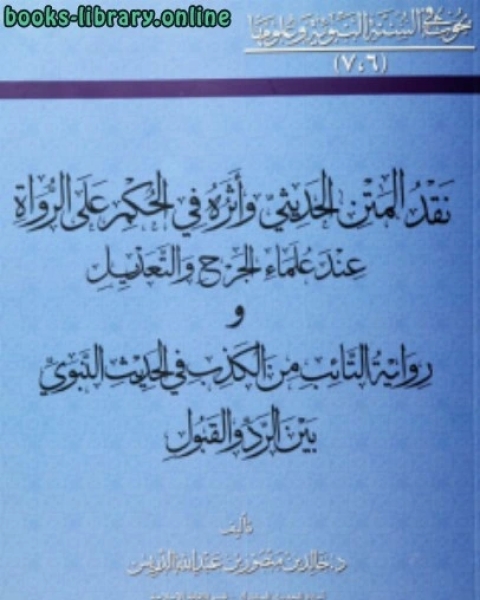 books-library.online
بحوث في السنة النبوية وعلومها
(٧،٦)
نَقْدُ المَتْنِ الحَدِيثِيِّ وَأَثَرُهُ فِي الحُكْمِ عَلَى الرُّوَاةِ
عِنْدَ عُلَمَاءِ الجَرْحِ وَالتَّعْدِيلِ
و
رِوَايَةُ التَّائِبِ مِنَ الكَذِبِ فِي الحَدِيثِ النَّبَوِيِّ
بَيْنَ الرَّدِّ وَالقَبُولِ
تأليف
د. خالد بن منصور بن عبد الله الدريس